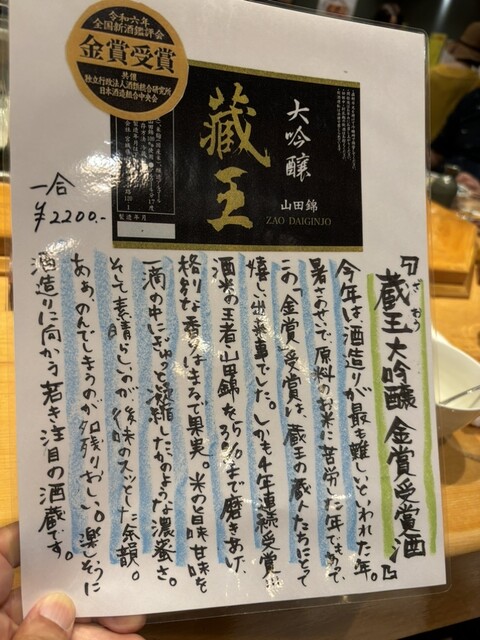 令和六年
全国新酒鑑評会
金賞受賞
共催
独立行政法人酒類総合研究所
日本酒造組合中央会
大吟醸
蔵王
山田錦
ZAO DAIGINJO
製造年月
一合
¥2200.-
『蔵王大吟醸 金賞受賞酒』
ざおう
今年は、酒造りが最も難しいといわれた年。
暑さのせいで、原料のお米に苦労した年でもあって、
この「金賞」受賞は、蔵王の蔵人たちにとって
嬉しい出来事でした。しかも4年連続受賞!!!
酒米の王者、山田錦を35%まで磨きあげ、
格別な香りはまるで果実。米の旨味甘味を
一滴の中にぎゅっと凝縮したかのような濃蜜さ。
そして素晴らしいのが後味のスッとした余韻。
あぁ、のんでしまうのが名残りおしい。楽しそうに
酒造りに向かう若き注目の酒蔵です。